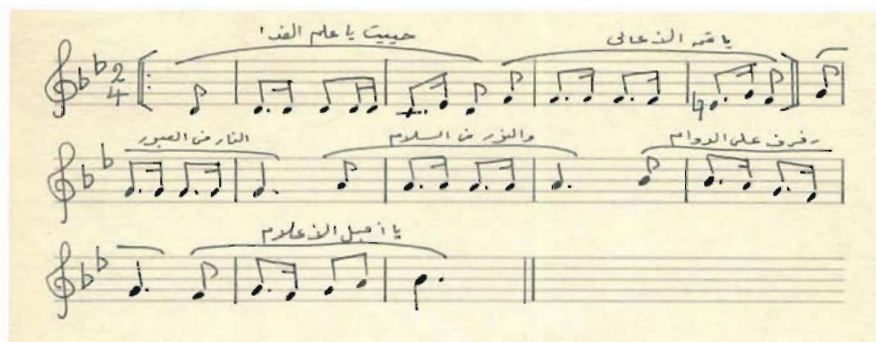 حييت يا علم الفدا يا قمة الأعالى
النار فى العبور والنور فى السلام رفرف على الدوام
يا أجمل الأعلام